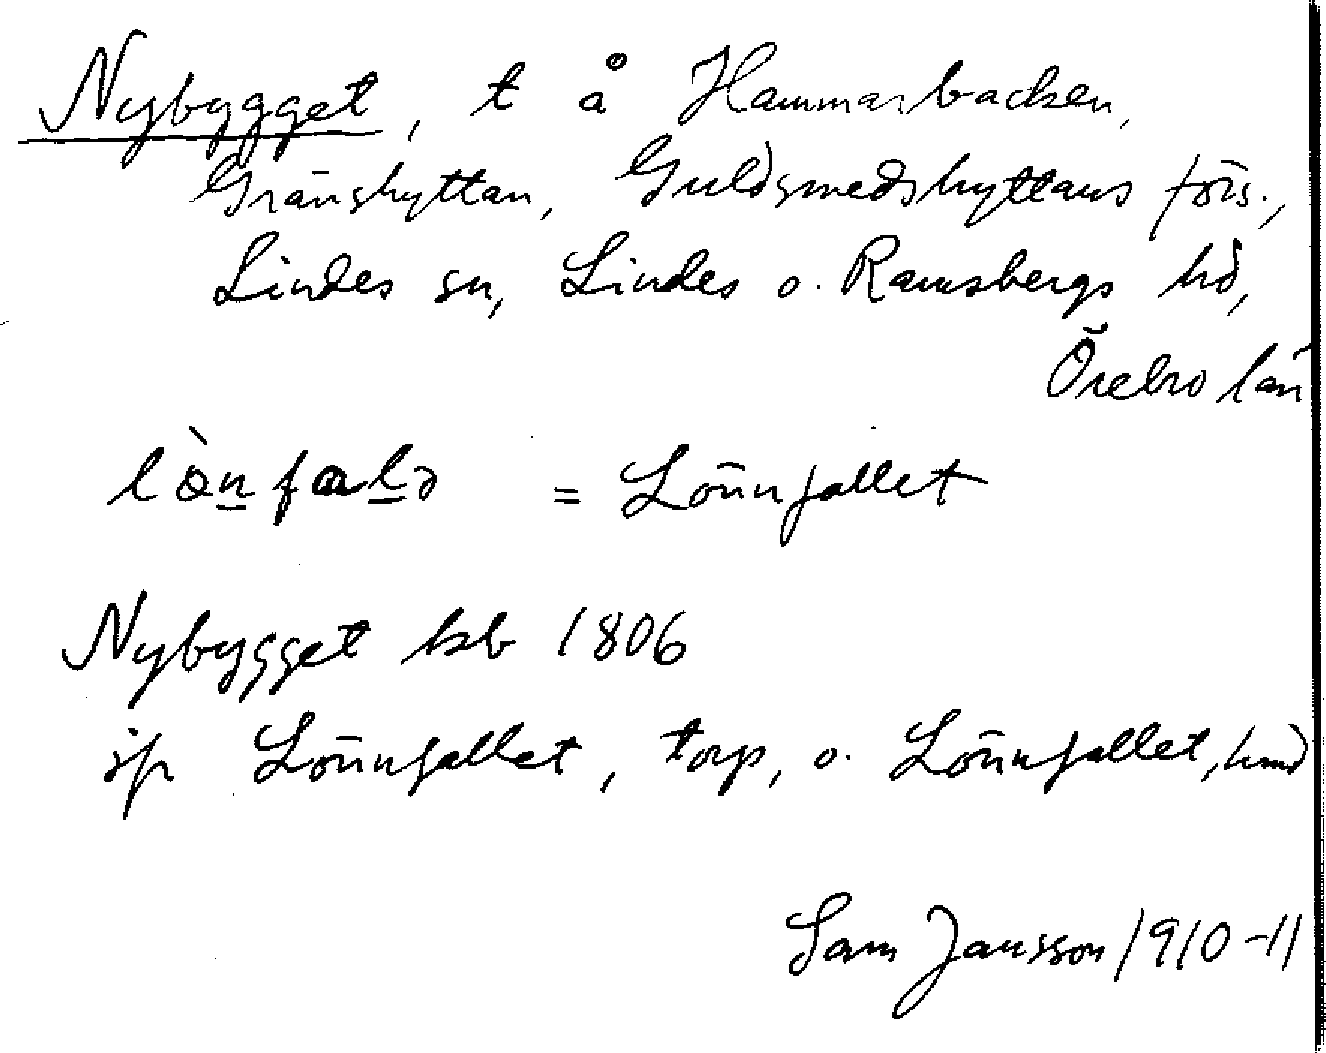 Nybygget, t å Hammarbacken,
Gränshyttan, Guldsmedshyttans förs.,
Lindes sn, Lindes o. Ramsbergs hd,
Örebro län
= Lönnfallet
Nybygget kb 1806
jfr Lönnfallet, torp, o. Lönnfallet, hmd
Sam Jansson 1910-11